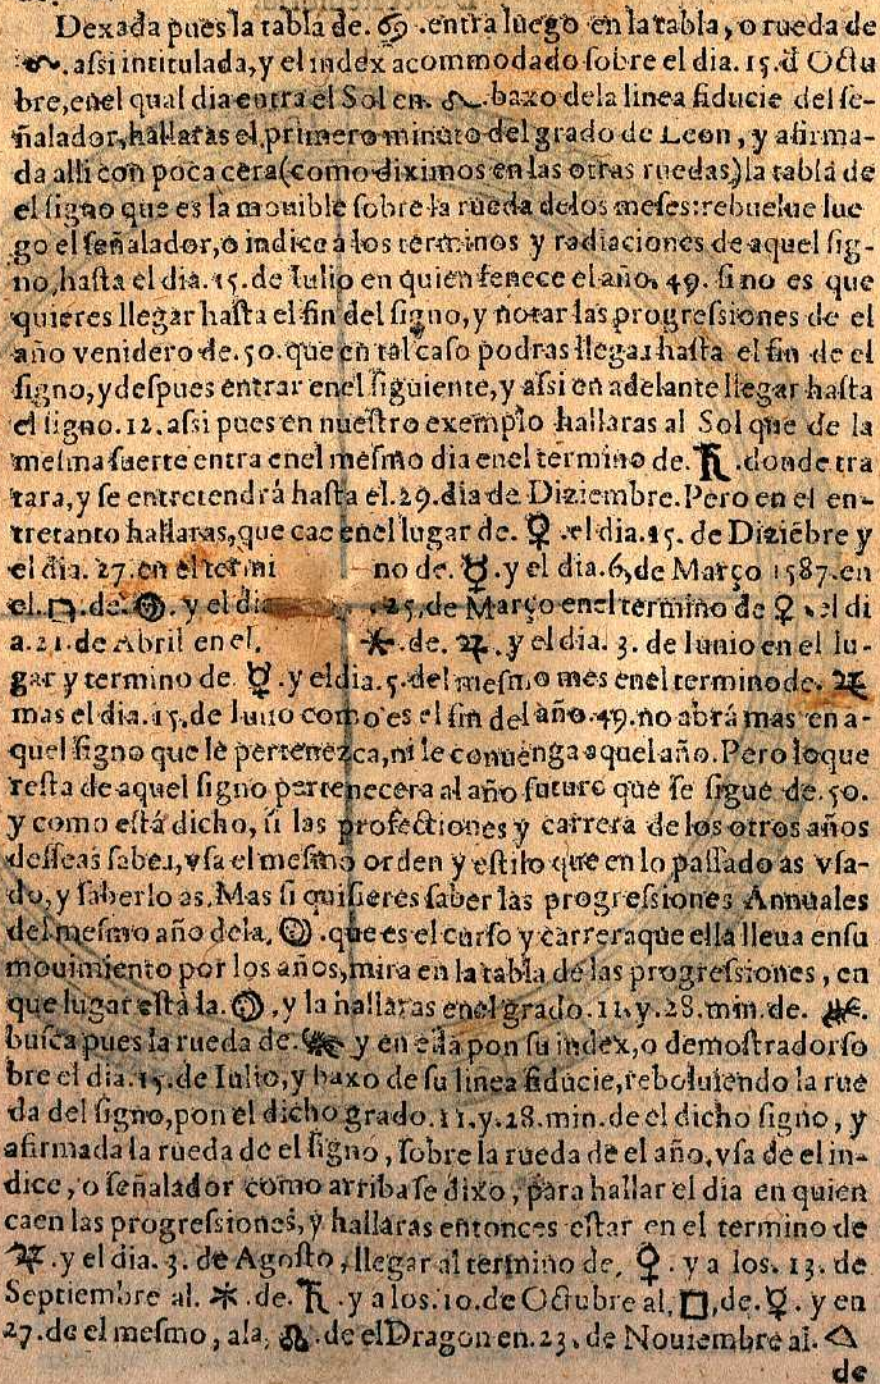 Dexada pues la tabla de. ♋ .entra luego en la tabla, o rueda de
♌. assi intitulada, y el index acommodado sobre el dia. 15. d̄ Octu
bre, enel qual dia entra el Sol en. ♌. baxo dela linea fiducie del se-
ñalador, hallaras el primero minuto del grado de Leon, y afirma-
da alli con poca cera (como diximos en las otras ruedas,) la tabla de
el signo que es la mouible sobre la rueda delos meses: rebuelue lue
go el señalador, o indice a los terminos y radiaciones de aquel sig-
no, hasta el dia. 15. de Iulio en quien fenece el año. 49. si no es que
quieres llegar hasta el fin del signo, y notar las progressiones de el
año venidero de. 50. que en tal caso podras llegar hasta el fin de el
signo, y despues entrar enel siguiente, y assi en adelante llegar hasta
el signo. 12. assi pues en nuestro exemplo hallaras al Sol que de la
mesma suerte entra enel mesmo dia enel termino de. ♄ .donde tra
tara, y se entretendrá hasta el. 29. dia de Diziembre. Pero en el en-
tretanto hallaras, que cae enel lugar de. ♀ .el dia. 15. de Diziẽbre y
el dia. 27. en el termi no de. ☿ .y el dia. 6, de Março 1587. en
el. □ .de. ☽ . y el dia 25, de Março enel termino de ♀ . el di
a. 21. de Abril en el. ⚹ .de. ♃ . y el dia. 3. de Iunio en el lu-
gar y termino de. ☿ .y el dia. 5. del mesmo mes enel termino de. ♃
mas el dia. 15. de Iulio como es el fin del año. 49. no abrá mas en a-
quel signo que le pertenezca, ni le conuenga aquel año. Pero loque
resta de aquel signo pertenecera al año futuro que se sigue de. 50.
y como está dicho, si las profectiones y carrera de los otros años
desseas saber, vsa el mesmo orden y estilo que en lo passado as vsa-
do, y saberlo as. Mas si quisieres saber las progressiones Annuales
del mesmo año dela. ☽ .que es el curso y carrera que ella lleua en su
mouimiento por los años, mira en la tabla de las progressiones, en
que lugar está la. ☽ , y la hallaras enel grado. 11. y. 28. min. de.
busca pues la rueda de. y en ella pon su index, o demostrador so
bre el dia. 15. de Iulio, y baxo de su linea fiducie, reboluiendo la rue
da del signo, pon el dicho grado. 11. y. 28. min. de el dicho signo, y
afirmada la rueda de el signo, sobre la rueda de el año, vsa de el in-
dice, o señalador como arriba se dixo, para hallar el dia en quien
caen las progressiones, y hallaras entonces estar en el termino de
♃ .y el dia. 3. de Agosto, llegar al termino de. ♀ . y a los. 13. de
Septiembre al. ⚹ .de. ♄ .y a los. 10. de Octubre al, □, de. ☿ . y en
27. de el mesmo, ala, ☊ .de el Dragon en. 23. de Nouiembre al. △
de